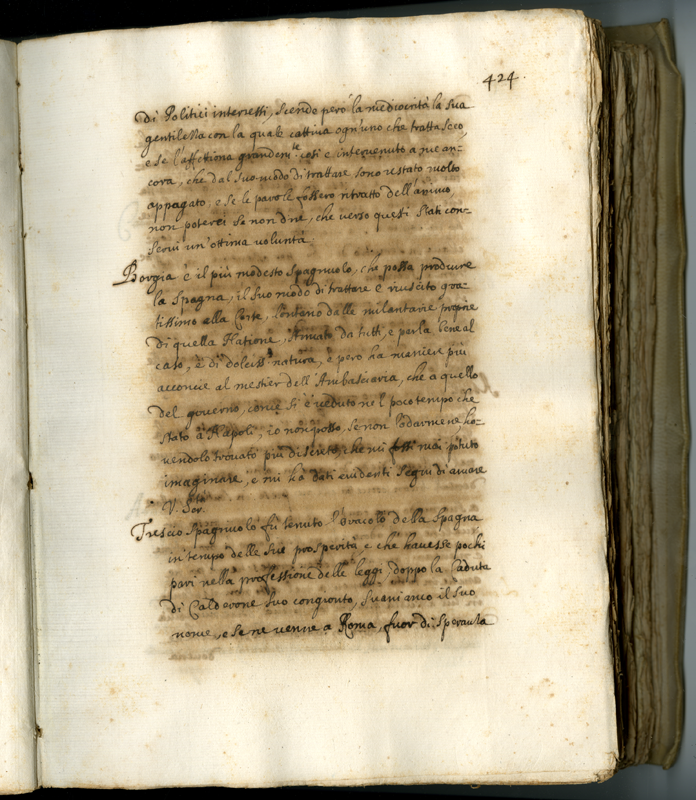 424.
di Politici interessi, scende però la mediocrità la sua
gentilezza con la quale cattiva ogn'uno che tratta seco,
e se l'affettiona grandem.te così è intervenuto a me an-
cora, che dal suo modo di trattare sono restato molto
appagato, e se le parole fossero ritratto dell'animo
non poterei se non dire, che verso questi stati con-
servi un'ottima volontà.
Borgia è il più modesto Spagnuolo, che possa produrre
la Spagna, il suo modo di trattare è riuscito gra-
tissimo alla Corte, lontano dalle milantarie proprie
di quella Natione, Amato da tutti, e parla bene al
caso, è di dolciss.a natura, e però ha maniere più
acconcie al mestier dell'Ambasciaria, che a quello
del governo, come si è veduto nel poco tempo che
stato à Napoli, io non posso, se non lodarmene ha-
vendolo trovato più discreto, che mi fossi mai potuto
imaginare, e mi ha dati evidenti segni di amare
V. Ser.tà
Trescio Spagnuolo fù tenuto l'oracolo della Spagna
in tempo delle sue prosperità, e che havesse pochi
pari nella professione delle leggi, doppo la Caduta
di Calderone suo congionto, svani anco il suo
nome, e se ne venne a Roma, fuor di speranza